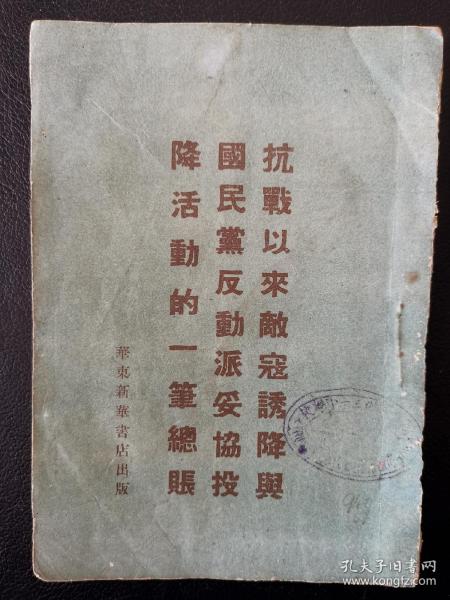 抗戰以來敵寇誘降與
國民黨反動派妥協投
降活動的一筆總賬
華東新華書店出版
孔夫子旧书网
www.kongfz.com